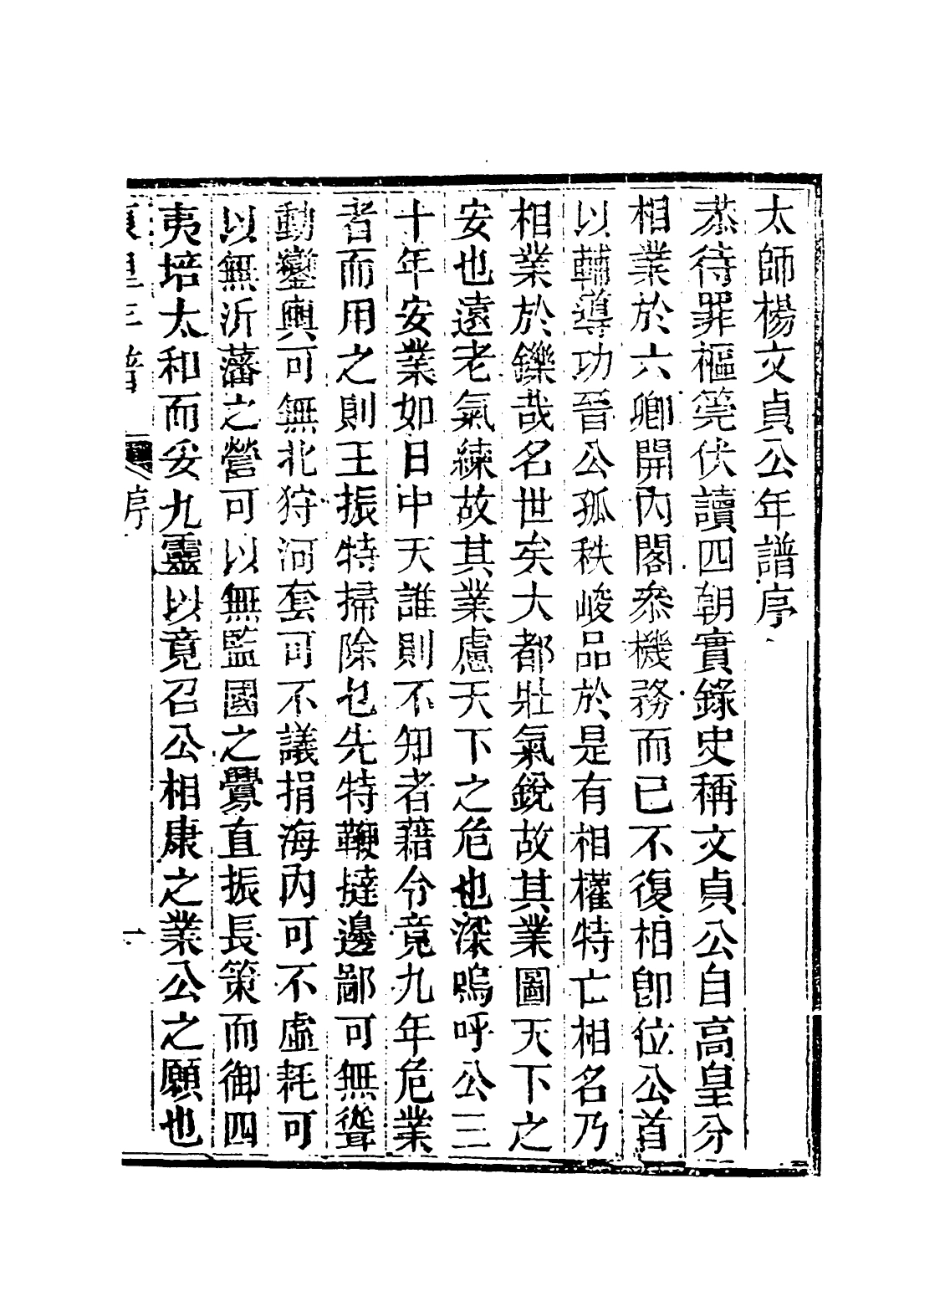 太師楊文貞公年譜序
恭待罪樞筦伏讀四朝實錄史稱文貞公自高皇分
相業於六卿開內閣叅機務而已不復相卽位公首
以輔導功晉公孤秩峻品於是有相權特亡相名乃
相業於鑠哉名世矣大都壯氣銳故其業圖天下之
安也遠老氣練故其業慮天下之危也深嗚呼公三
十年安業如日中天誰則不知者藉令竟九年危業
者而用之則王振特掃除乜先特鞭撻邊鄙可無聳
動鑾輿可無北狩河套可不議捐海內可不虛耗可
以無沂藩之營可以無監國之釁直振長策而御四
夷培太和而妥九靈以竟召公相康之業公之願也
年譜 序 一